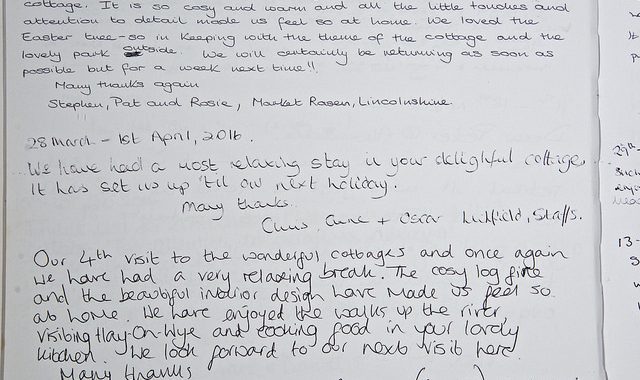 cottage. It is so cosy and warm and all the little touches and
attention to detail made us feel so at home. We loved the
Easter tree - so in keeping with the theme of the cottage and the
lovely park outside. We will certainly be returning as soon as
possible but for a week next time!!
Many thanks again
Stephen, Pat and Rosie, Market Rasen, Lincolnshire.
28 March - 1st April, 2016.
We have had a most relaxing stay in your delightful cottage,
It has set us up 'til our next holiday.
Many thanks.
Chris, Anne + Oscar Lichfield, Staffs.
Our 4th visit to the wonderful cottages and once again
we have had a very relaxing break. The cosy log fire
and the beautiful interior design have made us feel so
at home. We have enjoyed the walks up the river,
visiting Hay-On-Wye and cooking food in your lovely
kitchen. We look forward to our next visit here.
Many thanks
29th
13-